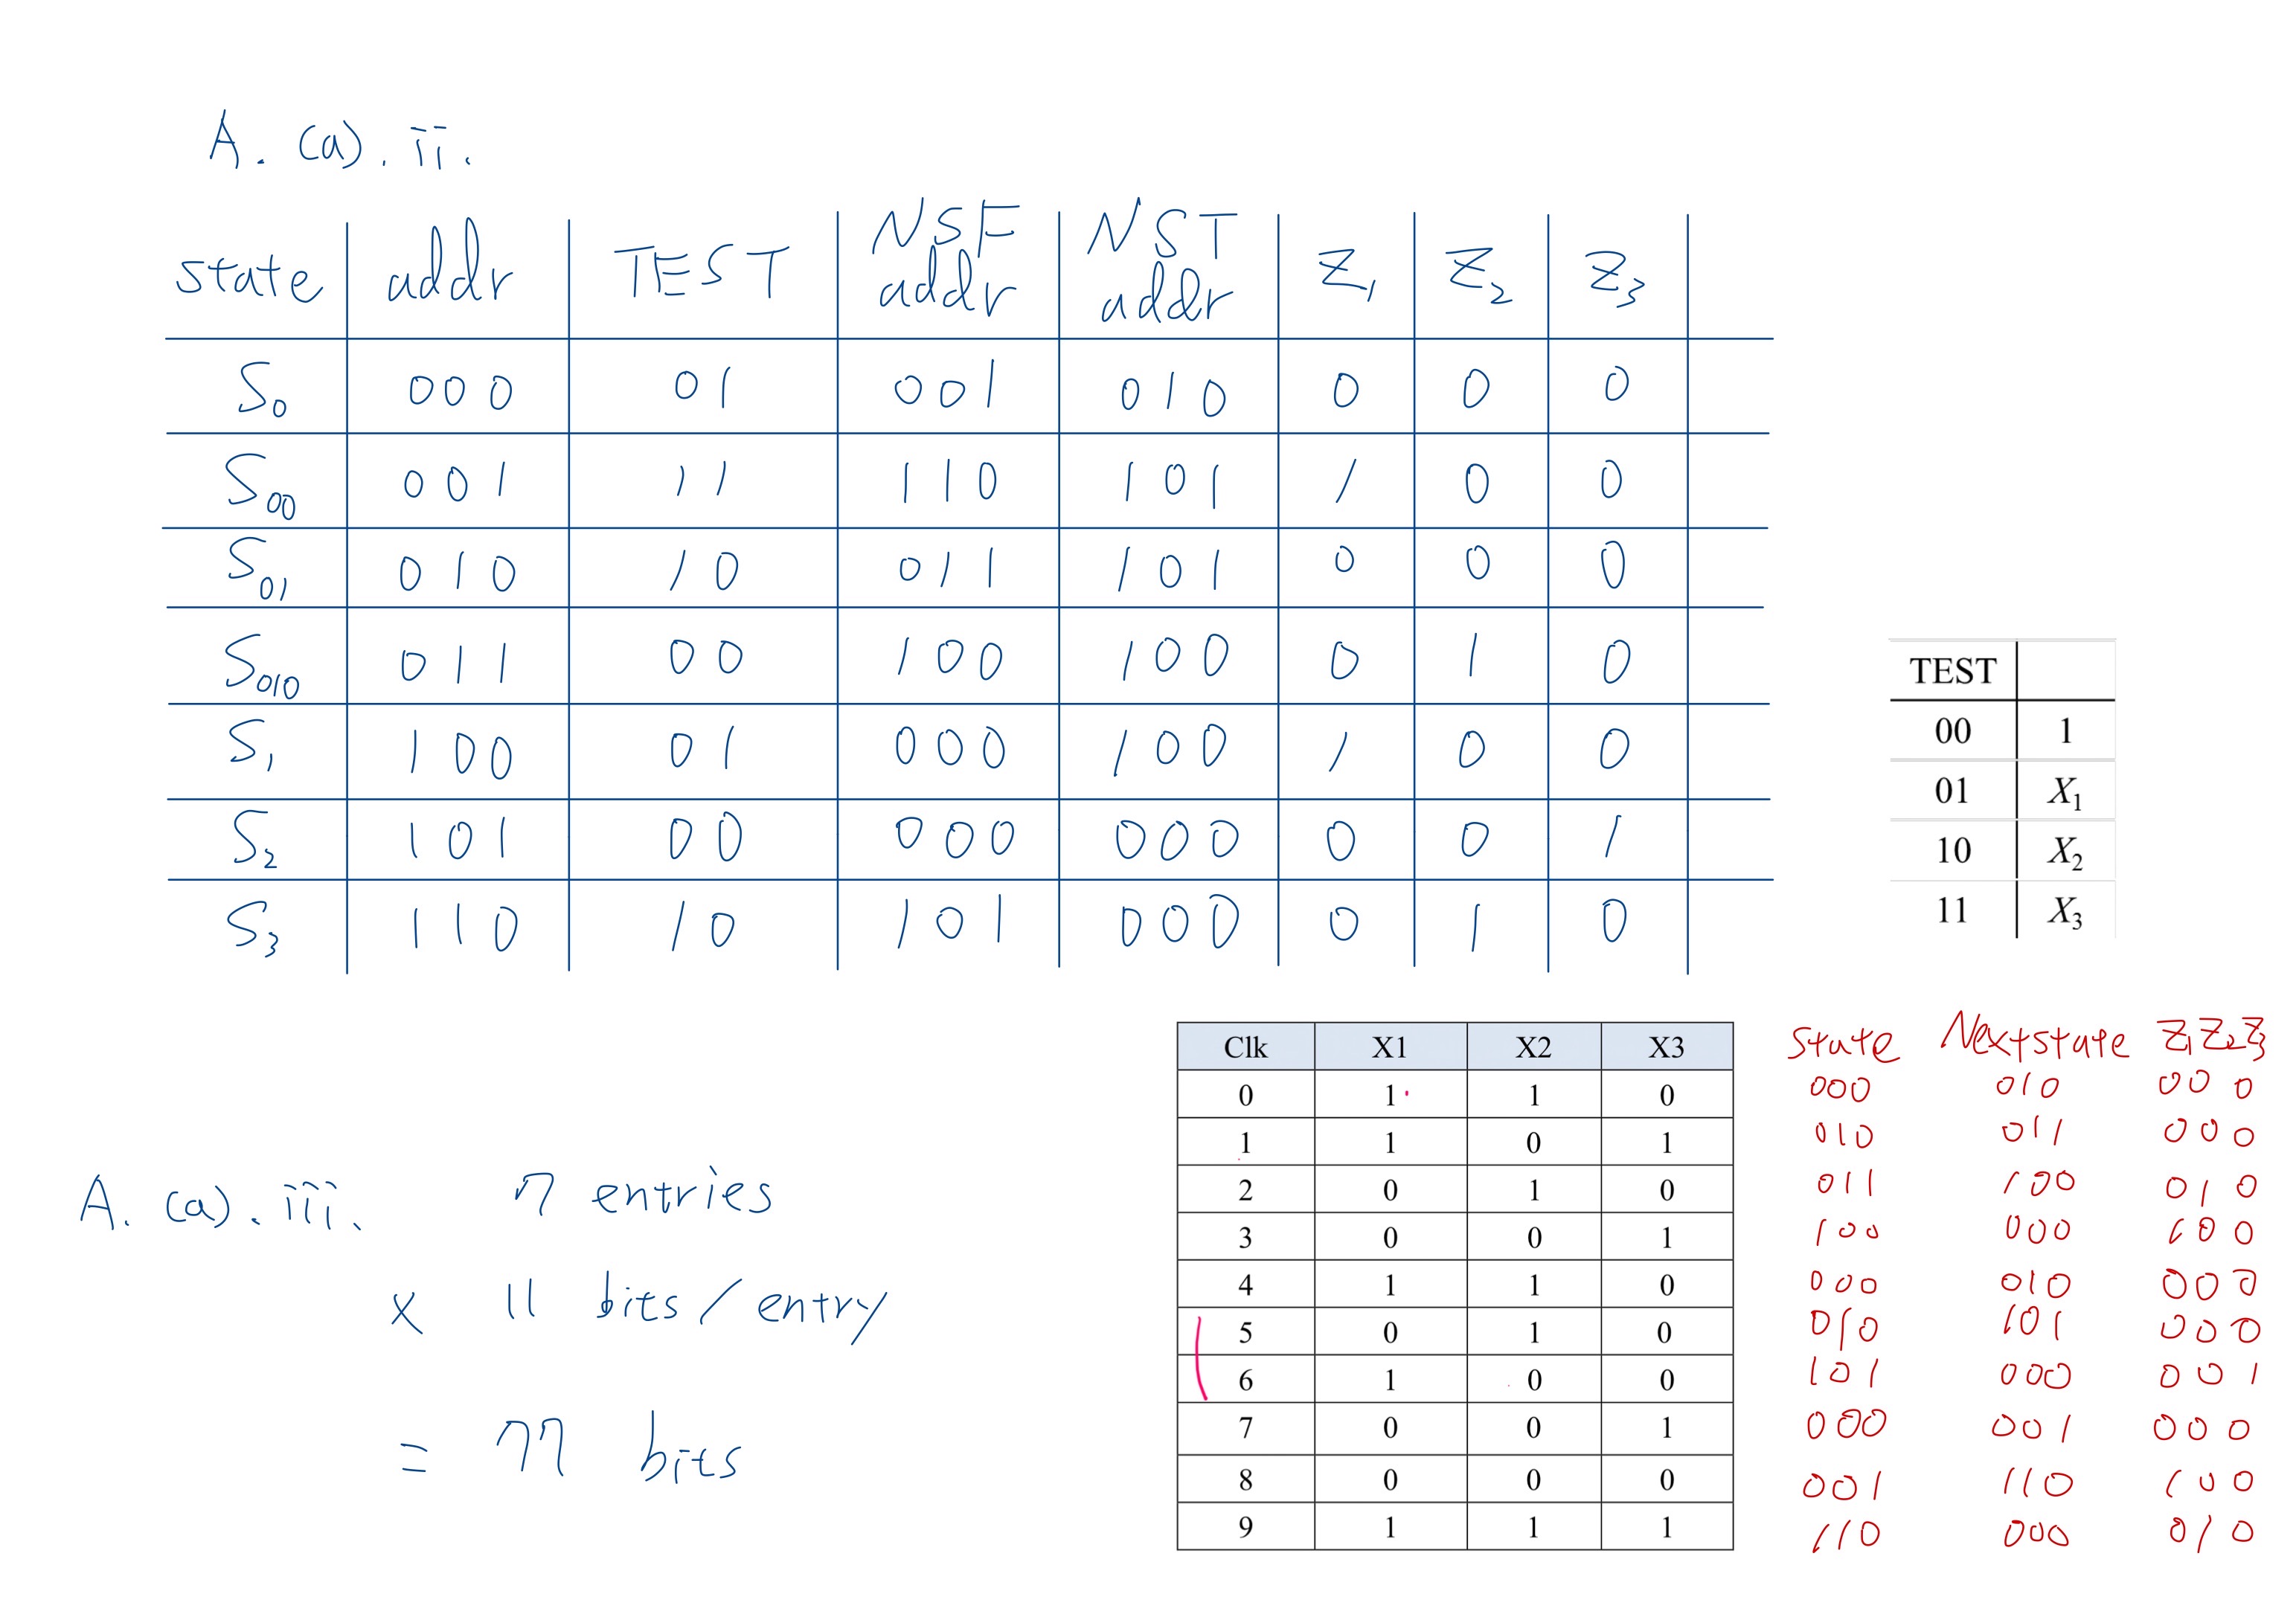 A. (a). ii.
state addr TEST NSF addr NST addr Z₁ Z₂ Z₃
S₀ 000 01 001 010 0 0 0
S₀₀ 001 11 110 101 1 0 0
S₀₁ 010 10 011 101 0 0 0
S₀₁₀ 011 00 100 100 0 1 0
S₁ 100 01 000 100 1 0 0
S₂ 101 00 000 000 0 0 1
S₃ 110 10 101 000 0 1 0
TEST
00 1
01 X₁
10 X₂
11 X₃
A. (a). iii. 7 entries
x 11 bits/entry
= 77 bits
Clk X1 X2 X3 state Nextstate Z₁Z₂Z₃
0 1 1 0 000 010 000
1 1 0 1 010 011 000
2 0 1 0 011 100 010
3 0 0 1 100 000 100
4 1 1 0 000 010 000
5 0 1 0 010 101 000
6 1 0 0 101 000 001
7 0 0 1 000 001 000
8 0 0 0 001 110 100
9 1 1 1 110 000 010